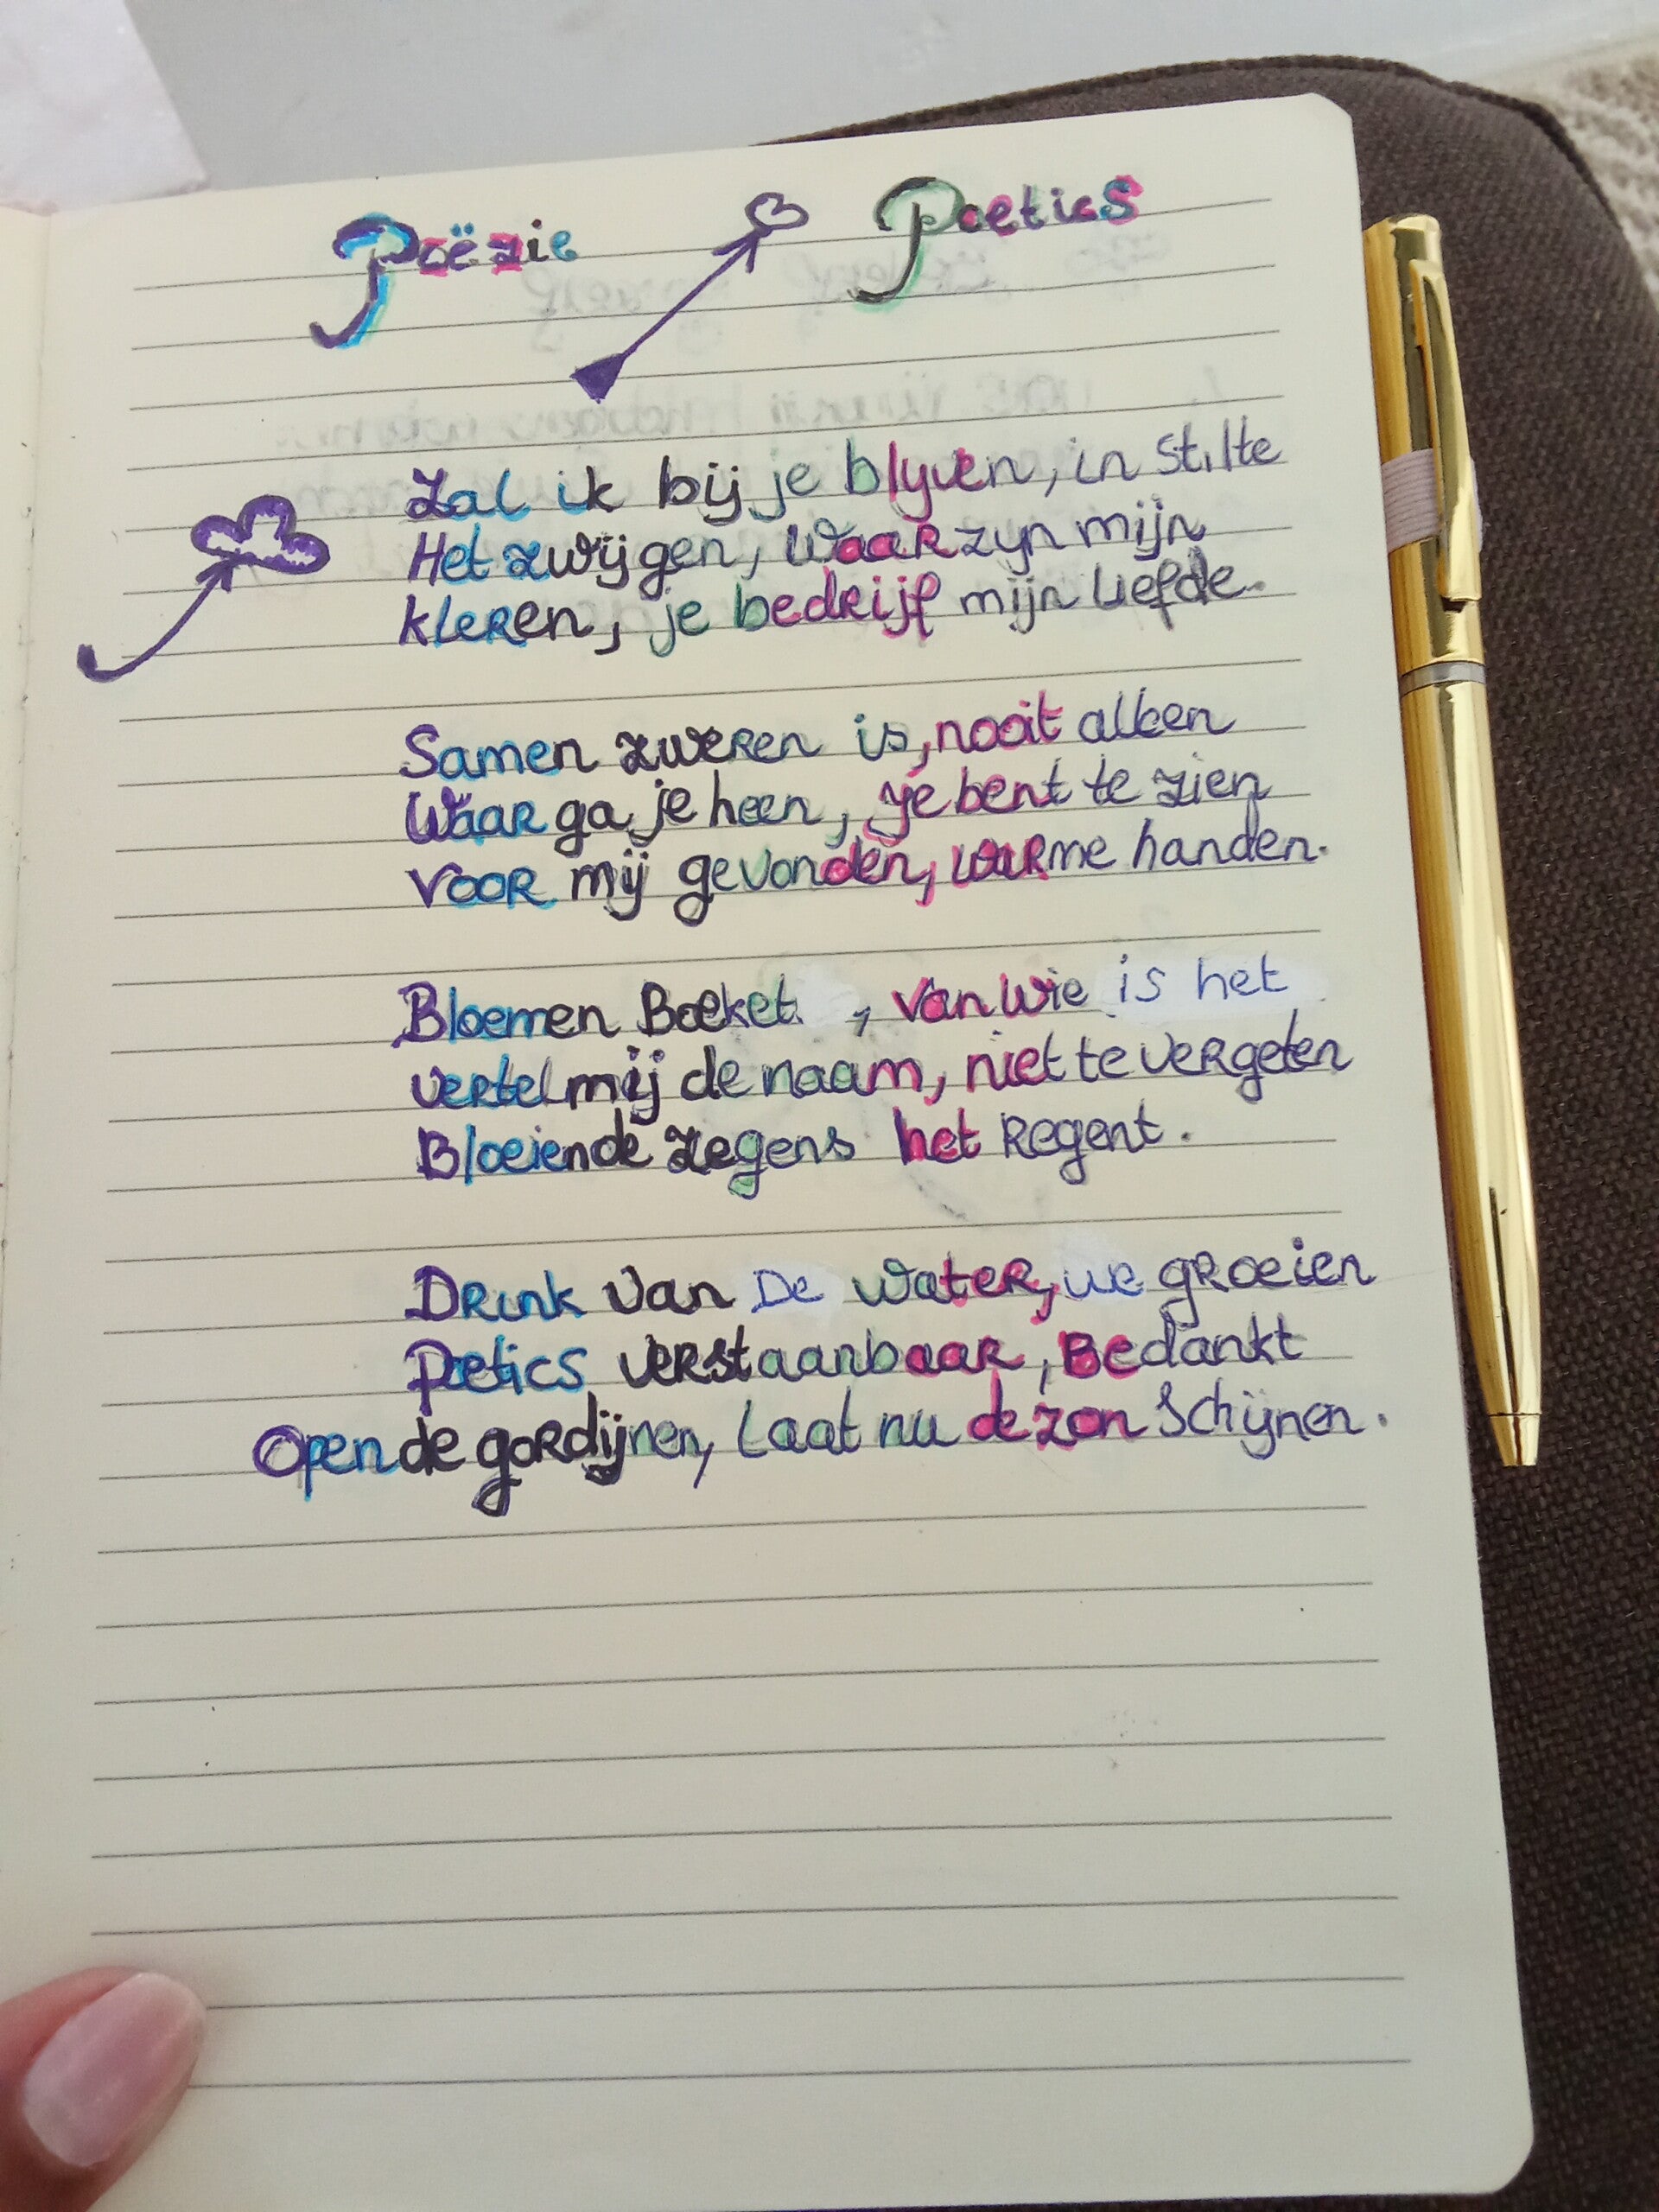 Poëzie Poetics
Zal ik bij je blyven, in stilte
Het zwijgen, waar zyn mijn
kleren, je bedrijf mijn liefde.
Samen zweren is, nooit alleen
Waar ga je heen, je bent te zien
voor mij gevonden, warme handen.
Bloemen Boeket, van wie is het
vertel mij de naam, niet te vergeten
Bloeiende zegens het Regent.
Drink van De water, we groeien
Poetics verstaanbaar, Bedankt
Open de gordijnen, Laat nu de zon schijnen.